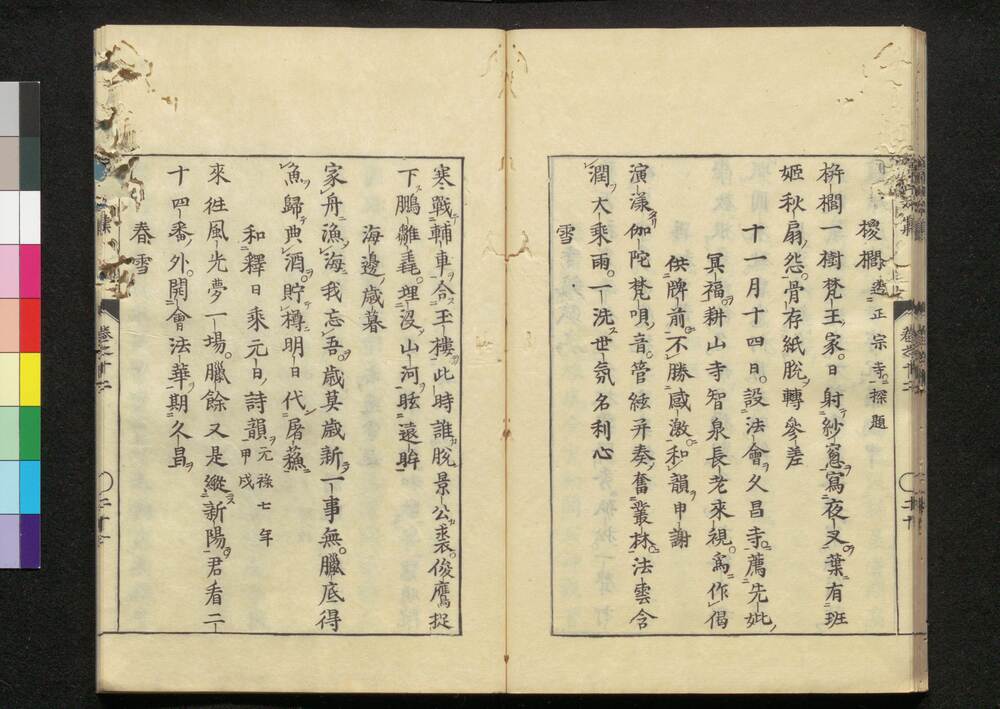 椶櫚 過正宗寺探題
栟櫚一樹梵王家日射紗窓寫夜叉葉有班
姬秋扇怨骨存紙脫轉參差
十一月十四日設法會久昌寺薦先妣
冥福耕山寺智泉長老來視爲作偈
供牌前不勝感激和韻申謝
演漾伽陀梵唄音管絃幷奏奮叢林法雲含
潤大乘雨一洗世氛名利心
雪
寒戰輔車合玉樓此時誰脫景公裘俊鷹捉
下鵬雛毳埋沒山河眩遠眸
海邊歲暮
家舟漁海我忘吾歲莫歲新一事無臘底得
魚歸典酒貯樽明日代屠蘓
和釋日乘元日詩韻 元祿七年甲戌
來徃風光夢一場臘餘又是縱新陽君看二
十四番外開會法華期久昌
春雪